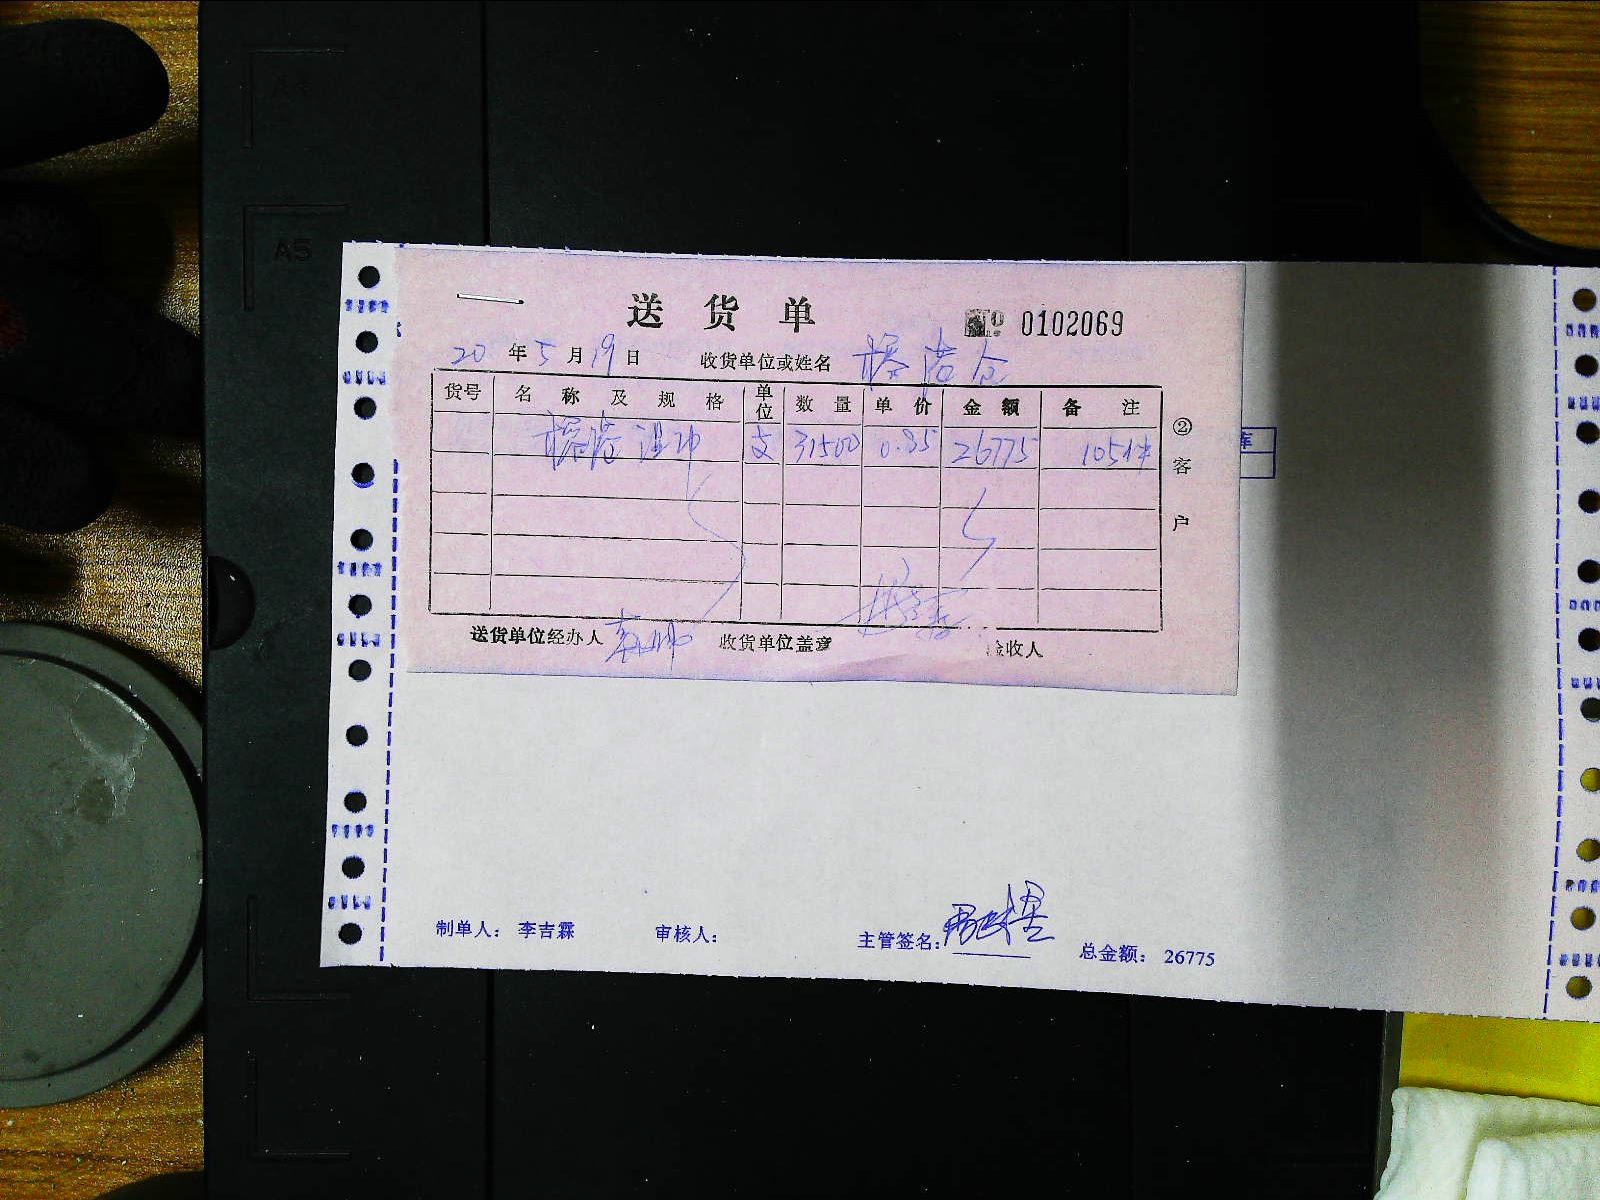 A4
A5
送货单
№ 0102069
20 年 5 月 19 日 收货单位或姓名
货号 名称及规格 单位 数量 单价 金额 备注
支 31500 0.85 26775 105件
②客户
库
送货单位经办人 收货单位盖章 验收人
制单人: 李吉霖 审核人: 主管签名: 总金额: 26775